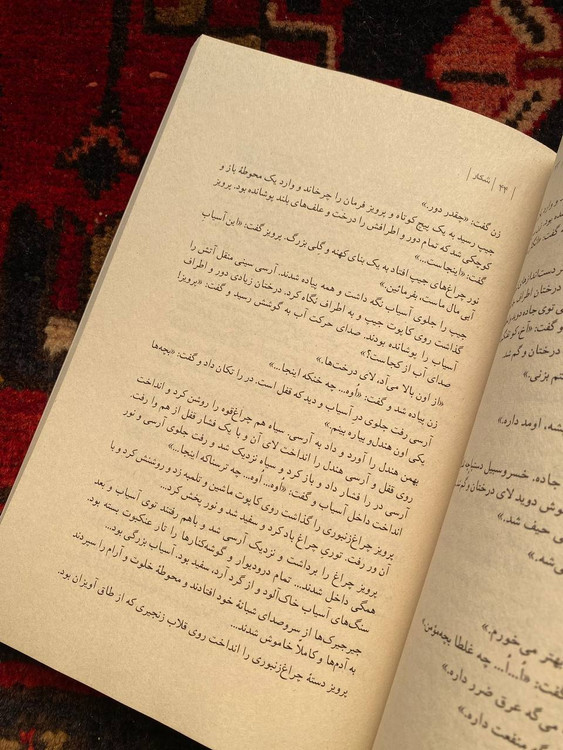 | ۴۴ | شکار |
زن گفت: «چقدر دور.»
جیپ رسید به یک پیچ کوتاه و پرویز فرمان را چرخاند و وارد یک محوطهٔ باز و
کوچکی شد که تمام دور و اطرافش را درخت و علف‌های بلند پوشانده بود. پرویز
گفت: «اینجاست...»
نور چراغ‌های جیپ افتاد به یک بنای کهنه و گلی بزرگ. پرویز گفت: «این آسیاب
آبی مال ماست، بفرمائین.»
جیپ را جلوی آسیاب نگه داشت و همه پیاده شدند. آرسی سینی منقل آتش را
گذاشت روی کاپوت جیپ و به اطراف نگاه کرد. درختان زیادی دور و اطراف
آسیاب را پوشانده بودند. صدای حرکت آب به گوشش رسید و گفت: «پرویز!
صدای آب از کجاست؟»
«از اون بالا می‌آد، لای درخت‌ها.»
زن پیاده شد و گفت: «اُوه... چه خنکه اینجا...»
آرسی رفت جلوی در آسیاب و دید که قفل است. در را تکان داد و گفت: «بچه‌ها
یکی اون هندل‌و بیاره بینم.»
بهمن هندل را آورد و داد به آرسی. سیاه هم چراغ‌قوه را روشن کرد و انداخت
روی قفل و آرسی هندل را انداخت لای آن و با یک فشار قفل از هم وا رفت.
آرسی در را فشار داد و باز کرد و سیاه نزدیک شد و رفت جلوی آرسی و نور
انداخت داخل آسیاب و گفت: «اُوه... اُوه... چه ترسناکه اینجا...»
پرویز چراغ‌زنبوری را گذاشت روی کاپوت ماشین و تلمبه زد و روشنش کرد و با
آن ور رفت. توری چراغ باد کرد و سفید شد و نور پخش کرد...
پرویز چراغ را برداشت و نزدیک آرسی شد و باهم رفتند توی آسیاب و بعد
همگی داخل شدند... تمام درودیوار و گوشه‌کنارها را تار عنکبوت بسته بود.
سنگ‌های آسیاب خاک‌آلود و از گرد آرد، سفید بود. آسیاب بزرگی بود...
جیرجیرک‌ها از سروصدای شبانهٔ خود افتادند و محوطهٔ خلوت و آرام را سپردند
به آدم‌ها و کاملا خاموش شدند...
پرویز دستهٔ چراغ‌زنبوری را انداخت روی قلاب زنجیری که از طاق آویزان بود.
درختان و گم شد
بزنی.»
اومد داره.»
جاده. خسرو سبیل
دوید لای درختان
حیف شد.»
بهتر می‌خورم.»
گفت: «اُ...اُ... چه غلطا بچه‌مؤمن؟
می گه عرق ضرر داره.»
منفعت داره.»